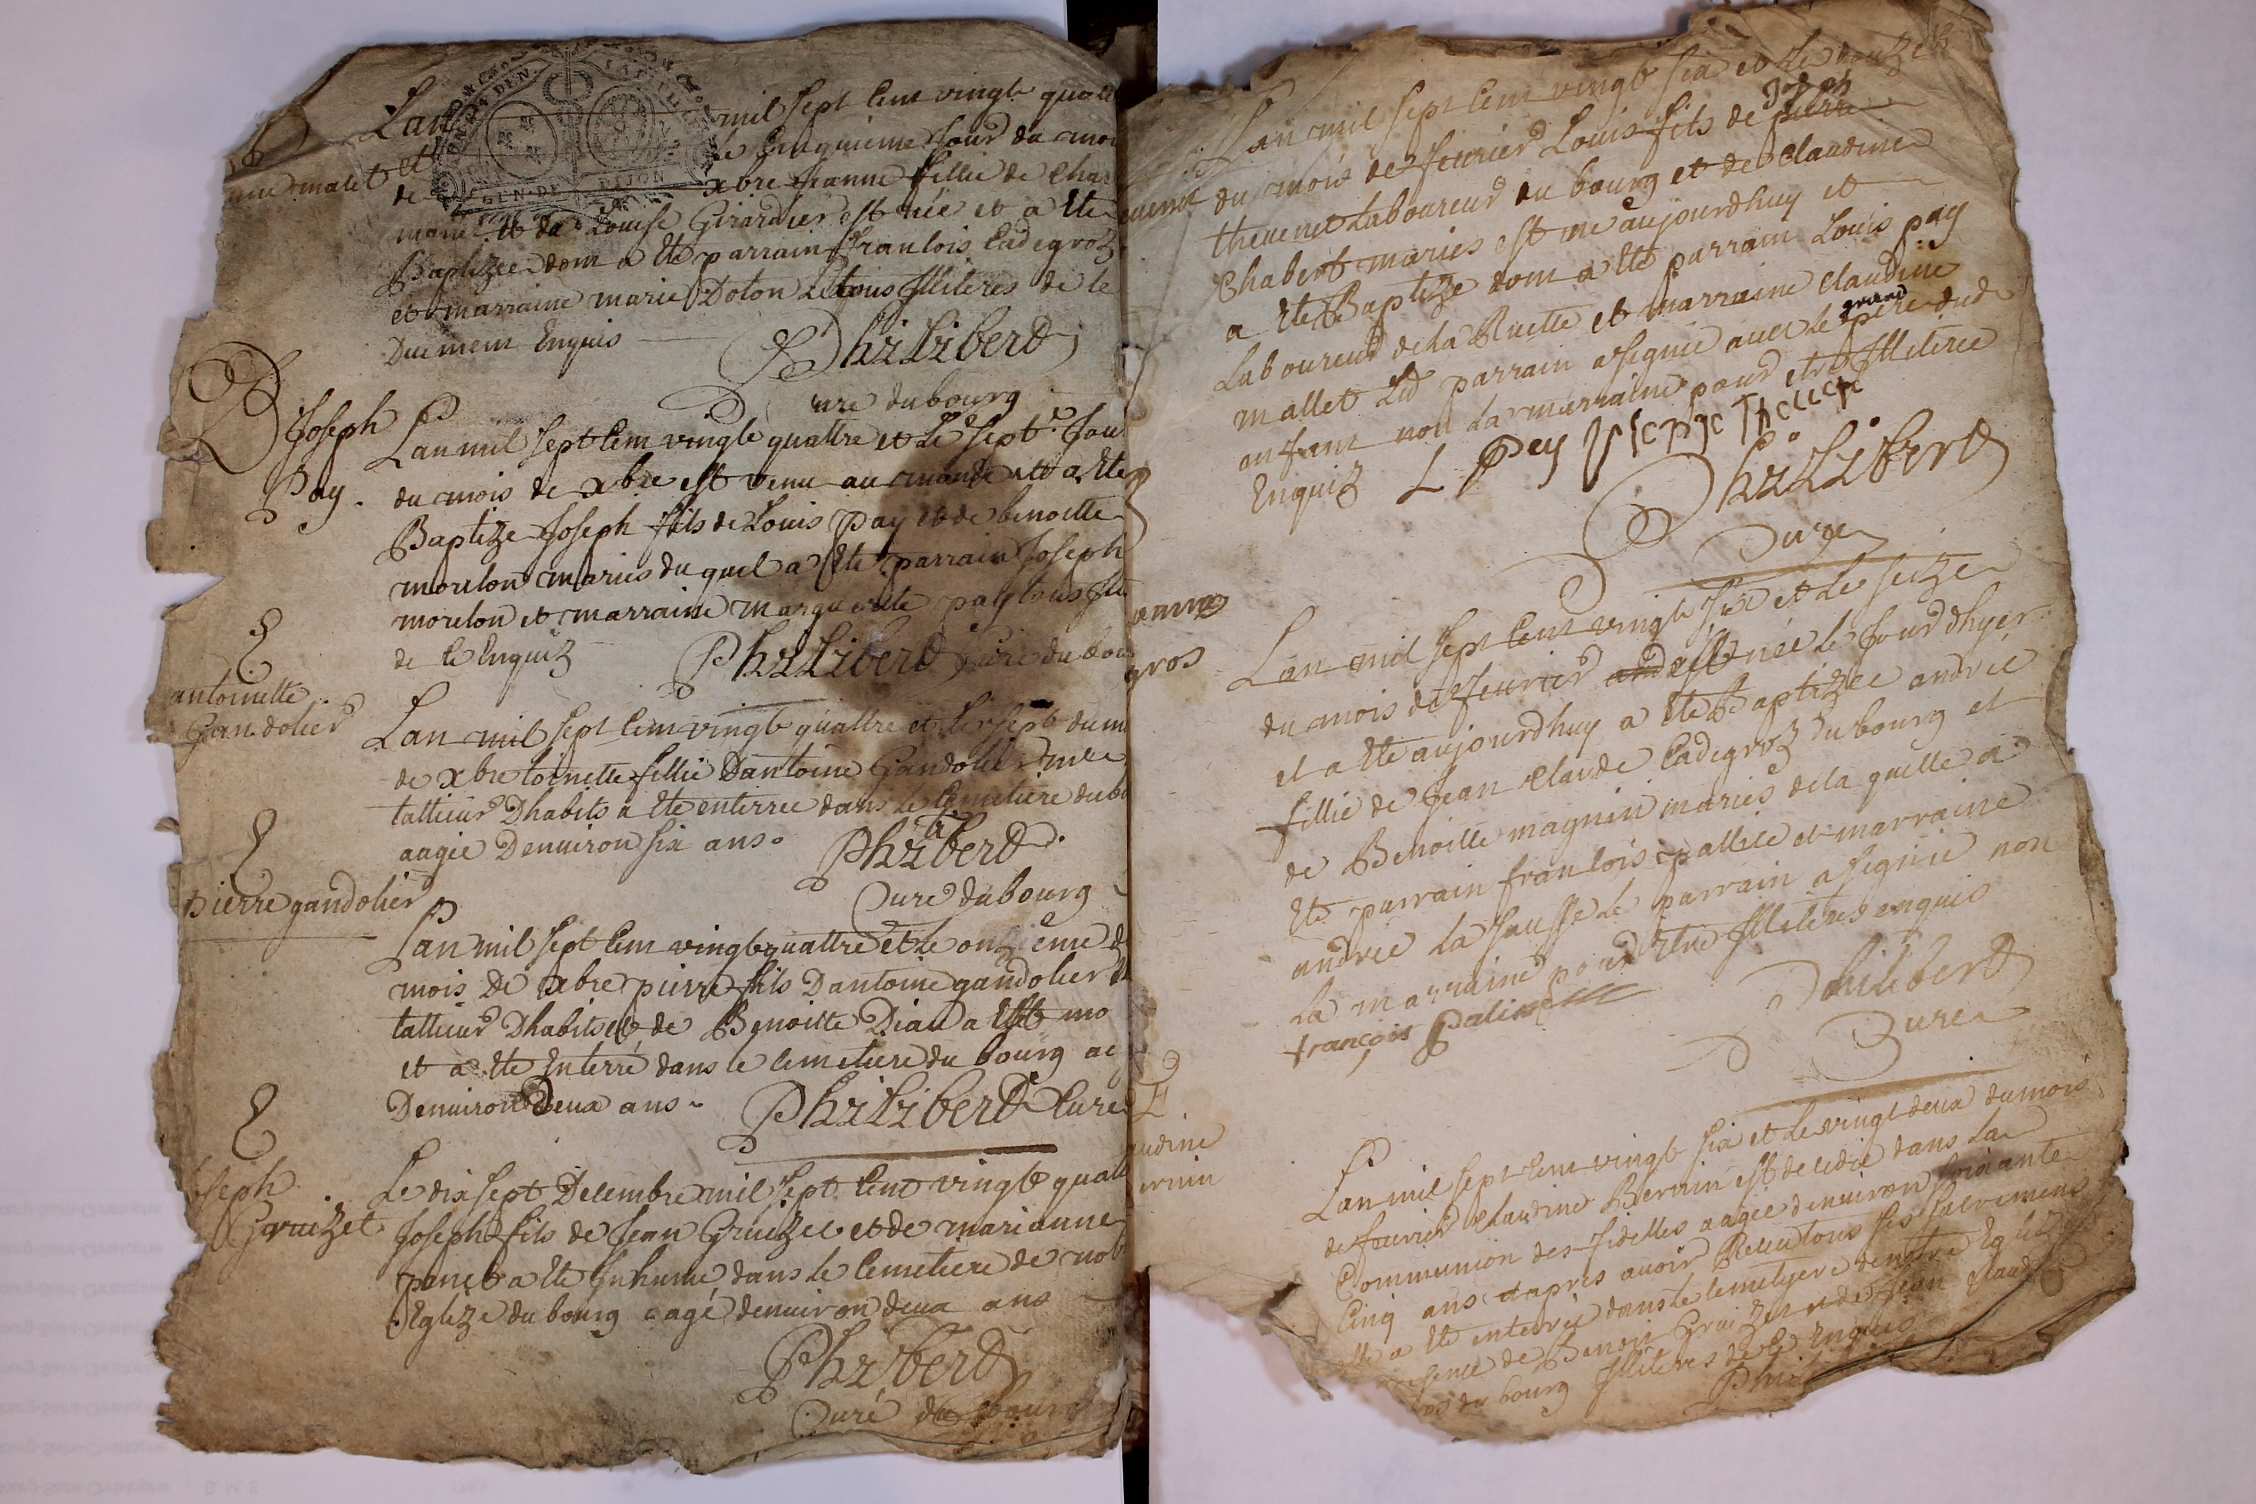 Lan mil sept cent vingt quatt
et le cinquieme jour du moi
de xbre jeanne fillie de char
malet et de Louise Girardier est née et a ete
Baptizee dont a ete parrain francois Cadegroz
et marraine marie Doton tous Illiteres de ce
Duement Enquis
Philibert
Curé du bourg
une malet
B
Joseph
Pay
Lan mil sept cent vingt quattre et Le sept. Jou
du mois de xbre est venu au monde et a ete
Baptize Joseph fils de Louis pay et de benoitte
morelon mariés du quel a ete parrain Joseph
morelon et marraine marguerite pay tous Ill
de ce Enquiz
Philibert Curé du bou
E
antoinette
Gandolier
Lan mil sept cent vingt quattre et le sept du m
de xbre toinette fillie Dantoine Gandolier me
tallieur Dhabits a ete enterree dans le Cemetiere du bo
aagée Denuiron six ans.
Philibert
Cure du bourg
E
pierre gandolier
Lan mil sept cent vingt quattre et le onzieme d
mois De xbre pierre fils Dantoine gandolier
tallieur Dhabits et de Benoitte Dian a este mo
et a ete Enterré dans le cemetiere du bourg ag
Denuiron Deux ans
Philibert Curé
E
oseph
Gruizet
Le dix sept Decembre mil sept cent vingt quatt
Joseph fils de Jean Gruizet et de marianne
penet a ete Inhumé dans le Cemetiere de not
Eglize du bourg aagé denuiron deux ans
Philibert
Curé du bourg
Lan mil sept cent vingt six et le douze
Joseph
du mois de feurier Louis fils de pierre
theuenet Laboureur du bourg et de claudine
Chabert mariés est ne aujourdhuy et
a ete Baptize dont a ete parrain Louis pay
Laboureur de la Ruette et marraine claudine
mallet Led parrain a signé auec le grand pere dud
enfant non la marraine pour etre Illiterée
Enquiz
L Pey
Philibert
Cure
anne
gros
Lan mil sept cent vingt six et le seize
du mois de feurier est née le Jour dhyer
et a ete aujourdhuy a ete Baptizee andrée
fillie de Jean claude Cadegroz du bourg et
de Benoitte magnin mariés de la quelle a
ete parrain francois pallice et marraine
andrée la sausse le parrain a signié non
la marraine pour etre Illiteres enquis
françois palisse
Philibert
Cure
E
audine
ernin
Lan mil sept cent vingt six et le vingt deux du mois
de feurier claudine Bernin est decedée dans la
Communion des fidelles aagée denuiron soixante
Cinq ans et apres auoir Receu tous ses sacremens
elle a ete enterrée dans le cemetyere de notre Eglize
sence de Benoit Gruizet et de Jean claude
du bourg Illiteres de ce Enquis
Phil